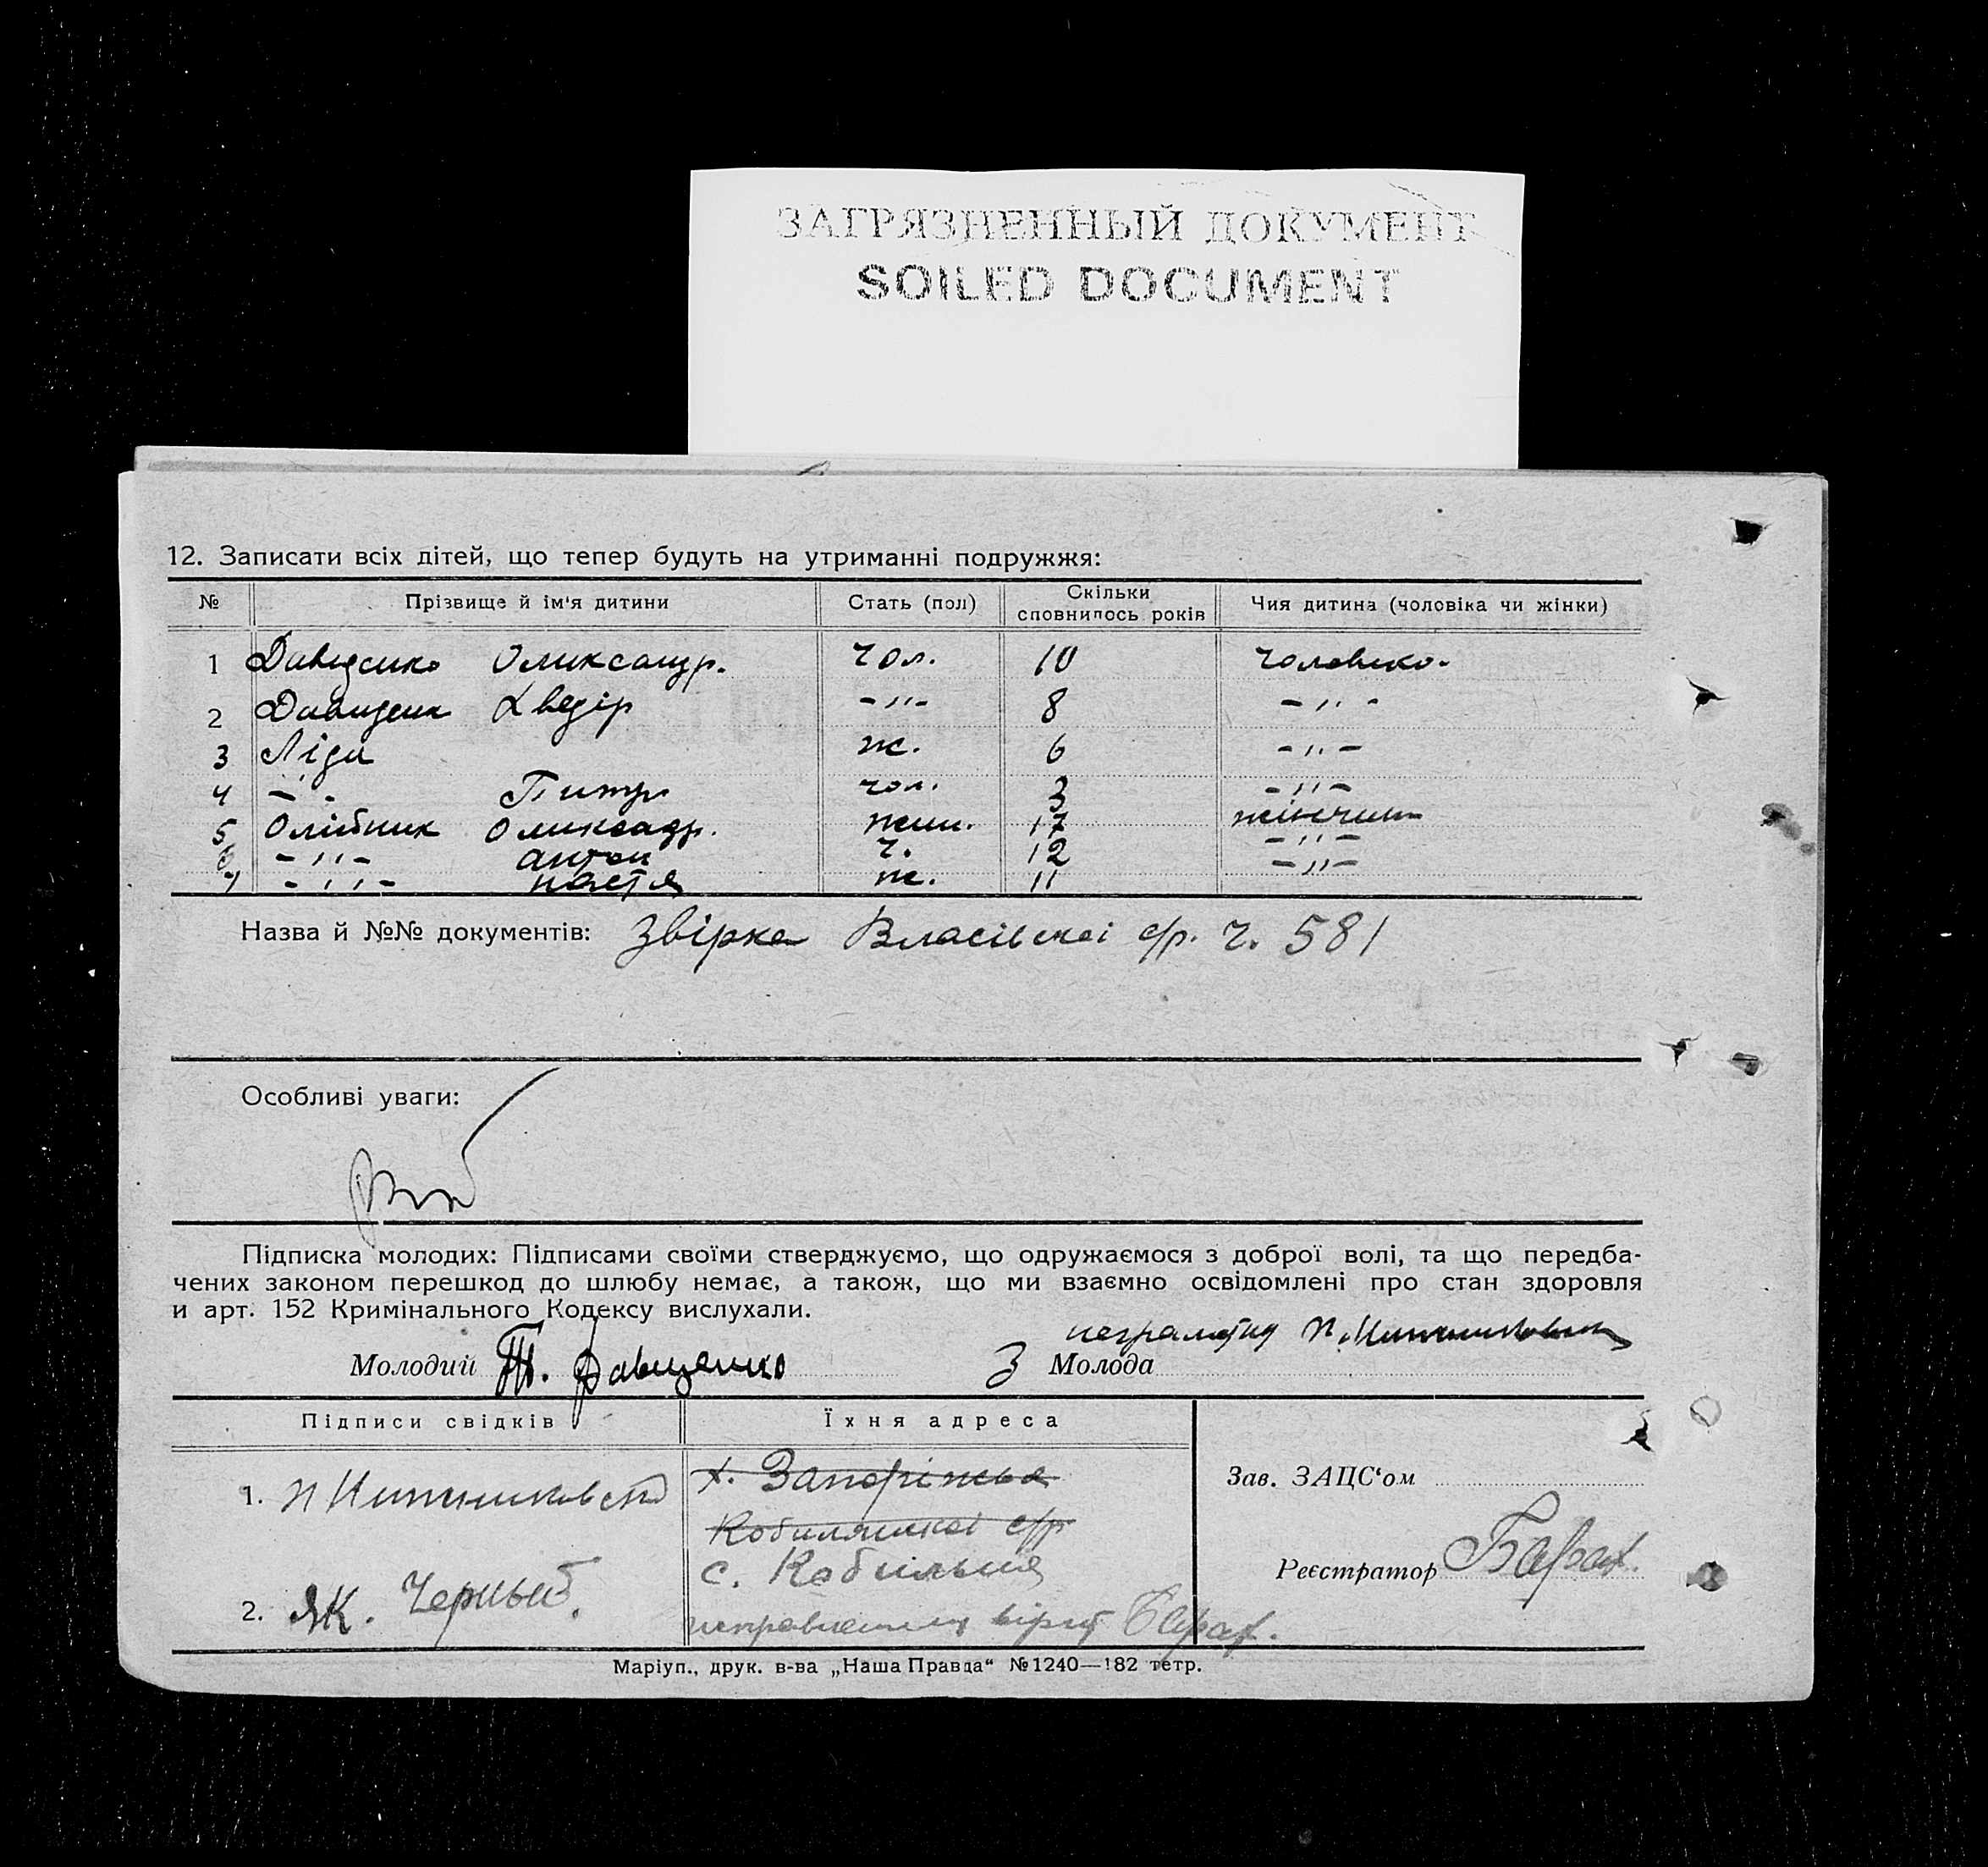 ЗАГРЯЗНЕННЫЙ ДОКУМЕНТ
SOILED DOCUMENT
12. Записати всіх дітей, що тепер будуть на утриманні подружжя:
№ Прізвище й ім'я дитини Стать (пол) Скільки сповнилось років Чия дитина (чоловіка чи жінки)
1 Давиденко Олександр. чол. 10
2 Хведір -"- 8 -"-
3 Ліда ж. 6 -"-
4 -"- Питро чол. 3 -"-
5 Олійник Олександр. жін. 17
6 -"- Антон ч. 12 -"-
7 -"- Настя ж. 11 -"-
Назва й №№ документів: Звірка Власівскої с/р. ч. 581
Особливі уваги:
Підписка молодих: Підписами своїми стверджуємо, що одружаємося з доброї волі, та що передба-
чених законом перешкод до шлюбу немає, а також, що ми взаємно освідомлені про стан здоровля
и арт. 152 Кримінального Кодексу вислухали.
Молодий Давиденко З Молода неграмотна П.
Підписи свідків Їхня адреса
1. П х. Запоріжжя Зав. ЗАЦС'ом
с/р
с. Кобильня Реєстратор Барах.
2. Як. Черный.
вірить Барах.
Маріуп., друк. в-ва „Наша Правда“ №1240—182 тетр.